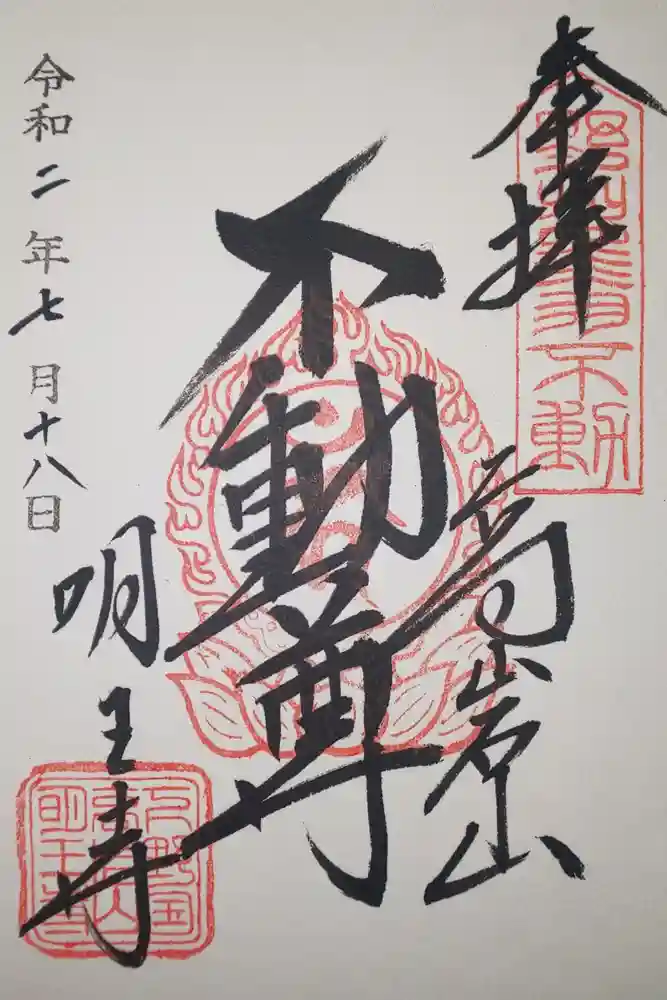 奉拝
高 山
不動尊
明王寺
令和二年七月十八日
不動